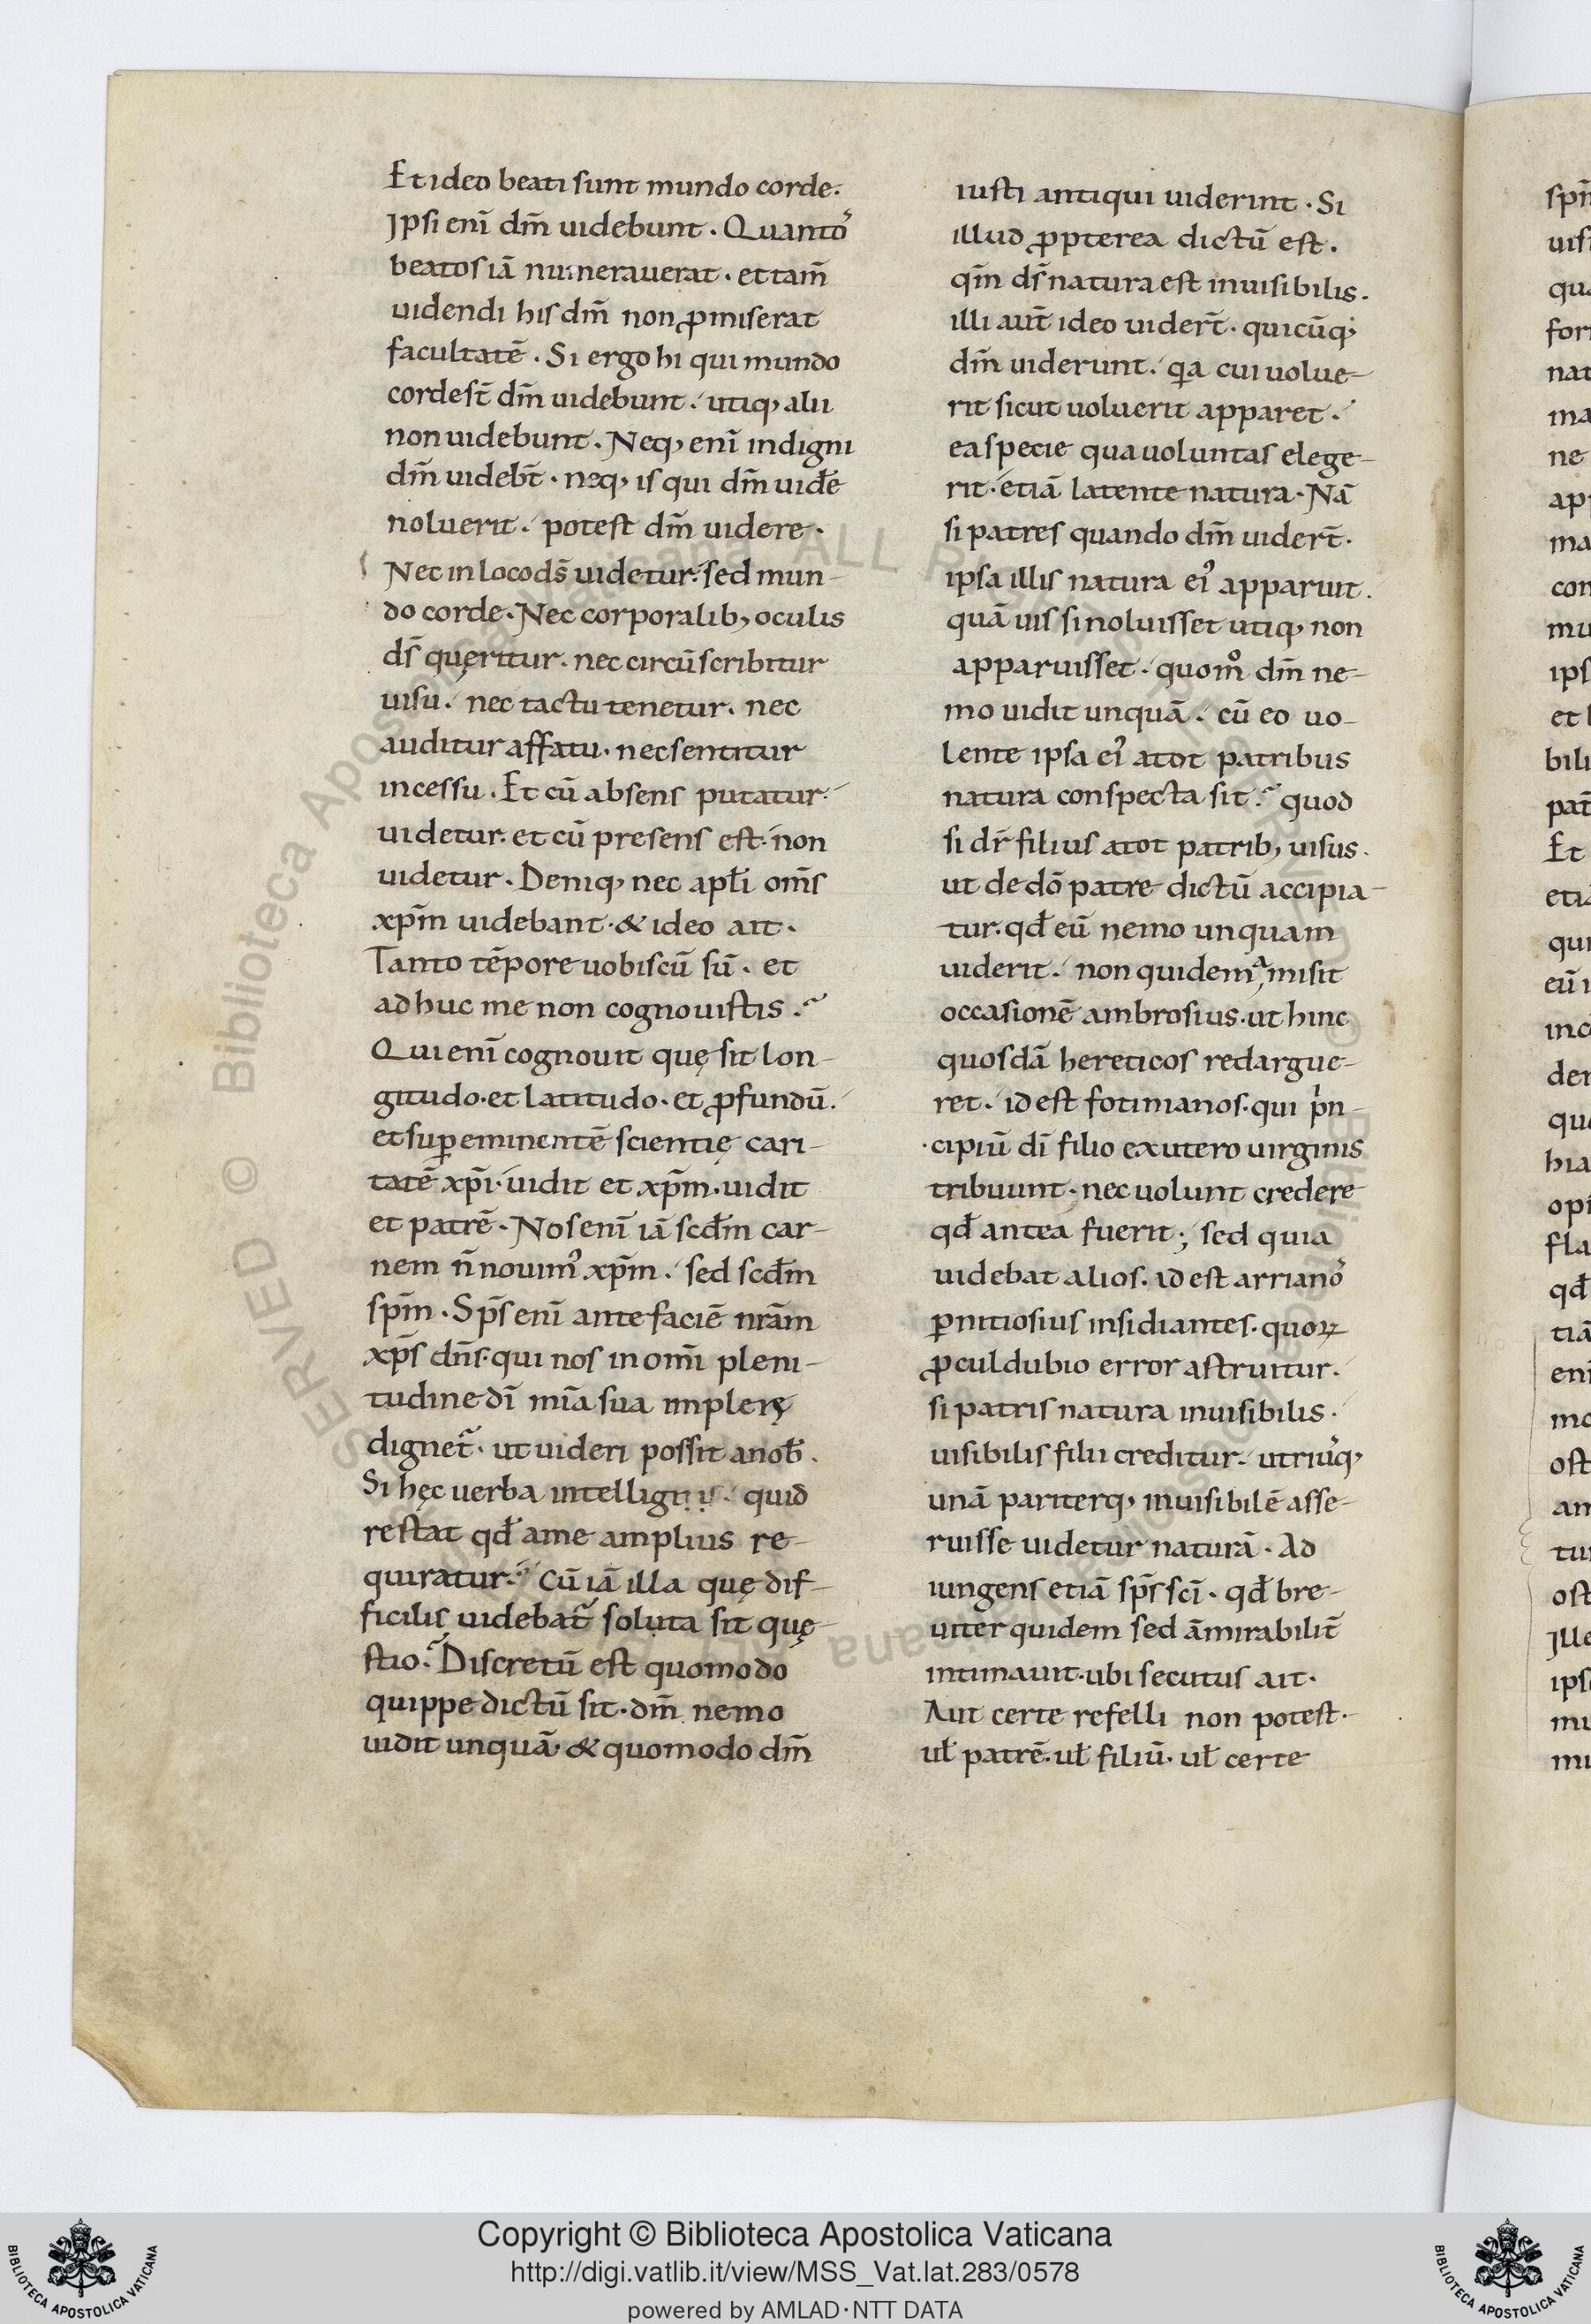 Et ideo beati sunt mundo corde.
Ipsi enī dm̄ uidebunt. Quantoʼ
beatos iā numerauerat. et tam̄
uidendi his dm̄ non ꝓmiserat
facultatē. Si ergo hi qui mundo
corde st̄ dm̄ uidebunt. utiq, alii
non uidebunt. Neq, enī indigni
dm̄ uidebt̄. neq, is qui dm̄ uid̄e
noluerit. potest dm̄ uidere.
Nec in loco ds̄ uidetur. sed mun-
do corde. Nec corporalib, oculis
ds̄ quęritur. nec circūscribitur
uisu. nec tactu tenetur. nec
auditur affatu. nec sentitur
incessu. Et cū absens putatur.
uidetur. et cū presens est. non
uidetur. Deniq, nec apłi om̄s
xpm̄ uidebant. & ideo ait.
Tanto tēpore uobiscū sū. et
adhuc me non cognouistis.
Qui enī cognouit quę sit lon-
gitudo. et latitudo. et ꝓfundū.
et suꝑeminentē scientię cari-
tatē xpī. uidit et xpm̄. uidit
et patrē. Nos enī iā scđm car-
nem n̄ nouimʼ xpm̄. sed scđm
spm̄. Sps̄ enī ante faciē nrām
xps̄ dn̄s. qui nos in om̄i pleni-
tudine dī mīa sua implerę
dignet̄. ut uideri possit a nob̄.
Si hęc uerba intelligitis. quid
restat qđ a me amplius re-
quiratur. Cū iā illa quę dif-
ficilis uidebat̄ soluta sit quę-
stio. Discretū est quomodo
quippe dictū sit. dm̄ nemo
uidit unquā. & quomodo dm̄
iusti antiqui uiderint. Si
illud ꝓpterea dictū est.
qm̄ ds̄ natura est inuisibilis.
illi aut̄ ideo uidert̄. quicūq;
dm̄ uiderunt. qa cui uolue-
rit sicut uoluerit apparet.
ea specie qua uoluntas elege-
rit. etiā latente natura. Nā
si patres quando dm̄ uidert̄.
ipsa illis natura eiʼ apparuit.
quā uis si noluisset utiq, non
apparuisset. quom̊ dm̄ ne-
mo uidit unquā. cū eo uo-
lente ipsa eiʼ a tot patribus
natura conspecta sit. quod
si dr̄ filius a tot patrib, uisus.
ut de dō patre dictū accipia-
tur. qđ eū nemo unquam
uiderit. non quidem amisit
occasionē ambrosius. ut hinc
quosdā hereticos redargue-
ret. id est fotinianos. qui pʼn-
cipiū dī filio ex utero uirginis
tribuunt. nec uolunt credere
qđ antea fuerit; sed quia
uidebat alios. id est arrianoʼ
ꝑnitiosius insidiantes. quoꝝ
ꝓcul dubio error astruitur.
si patris natura inuisibilis.
uisibilis filii creditur. utriuʼq,
unā pariterq, inuisibilē asse-
ruisse uidetur naturā. Ad
iungens etiā sps̄ scī. qđ bre-
uiter quidem sed āmirabilit̄
intimauit. ubi secutus ait.
Aut certe refelli non potest.
uł patrē. uł filiū. uł certe
Copyright © Biblioteca Apostolica Vaticana
http://digi.vatlib.it/view/MSS_Vat.lat.283/0578
powered by AMLAD·NTT DATA